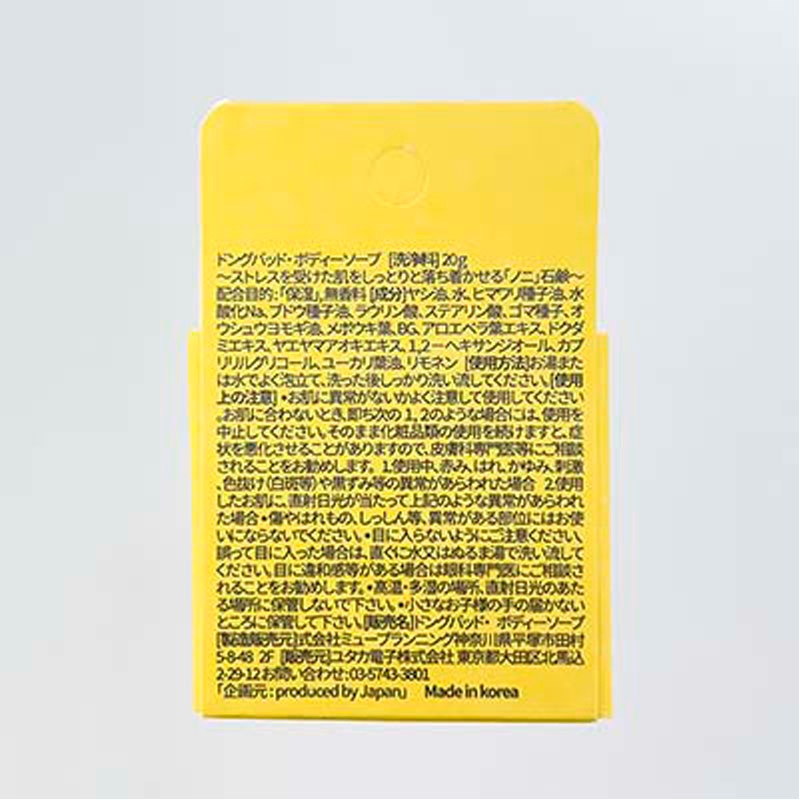 ドングバッド・ボディーソープ [洗浄料] 20g
～ストレスを受けた肌をしっとりと落ち着かせる「ノニ」石鹸～
配合目的:「保湿」,無香料 [成分]ヤシ油、水、ヒマワリ種子油、水
酸化Na、ブドウ種子油、ラウリン酸、ステアリン酸、ゴマ種子、オ
ウシュウヨモギ油、メボウキ葉、BG、アロエベラ葉エキス、ドクダ
ミエキス、ヤエヤマアオキエキス、1,2－ヘキサンジオール、カプ
リリルグリコール、ユーカリ葉油、リモネン [使用方法]お湯また
は水でよく泡立て、洗った後しっかり洗い流してください。[使用
上の注意] •お肌に異常がないかよく注意して使用してください
。お肌に合わないとき、即ち次の 1, 2のような場合には、使用を
中止してください。そのまま化粧品類の使用を続けますと、症
状を悪化させることがありますので、皮膚科専門医等にご相談
されることをお勧めします。 1.使用中、赤み、はれ、かゆみ、刺激
、色抜け（白斑等）や黒ずみ等の異常があらわれた場合 2.使用
したお肌に、直射日光が当たって上記のような異常があらわれ
た場合 •傷やはれもの、しっしん等、異常がある部位にはお使
いにならないでください。 •目に入らないようにご注意ください。
誤って目に入った場合は、直ぐに水又はぬるま湯で洗い流して
ください。目に違和感等がある場合は眼科専門医にご相談さ
れることをお勧めします。 •高温・多湿の場所、直射日光のあた
る場所に保管しないで下さい。 •小さなお子様の手の届かない
ところに保管して下さい。[販売名]ドングバッド・ ボディーソープ
[製造販売元]式会社ミュープランニング神奈川県平塚市田村
5-8-48 2F [販売元]ユタカ電子株式会社 東京都大田区北馬込
2-29-12お問い合わせ:03-5743-3801
「企画元 : produced by Japan」 Made in korea